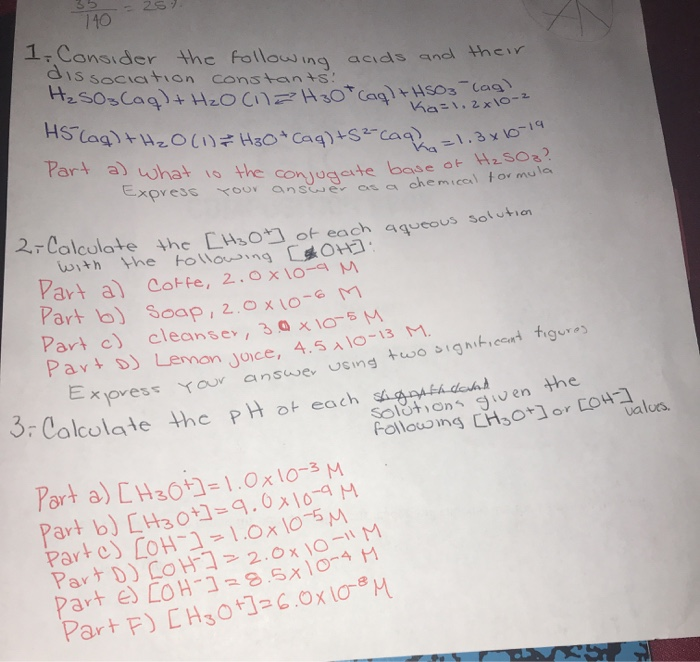 35
140
= 25%
1,- Consider the following acids and their
dissociation constants:
H2SO3(aq) + H2O(l) ⇌ H3O+ (aq) + HSO3- (aq)
Ka=1.2x10-2
HS-(aq) + H2O(l) ⇌ H3O+(aq) + S2-(aq)
Ka=1.3x10-19
Part a) what is the conjugate base of H2SO3?
Express your answer as a chemical formula
2,- Calculate the [H3O+] of each aqueous solution
with the following [OH-]:
Part a) Coffe, 2.0x10-9 M
Part b) Soap, 2.0x10-6 M
Part c) cleanser, 3.0x10-5 M
Part D) Lemon Juice, 4.5x10-13 M.
Express Your answer using two significant figures
3,- Calculate the pH of each solutions given the
following [H3O+] or [OH-] values.
Part a) [H3O+]=1.0x10-3 M
Part b) [H3O+]=9.0x10-9 M
Part c) [OH-]=1.0x10-5 M
Part D) [OH-]=2.0x10-11 M
Part e) [OH-]=8.5x10-4 M
Part F) [H3O+]=6.0x10-8 M